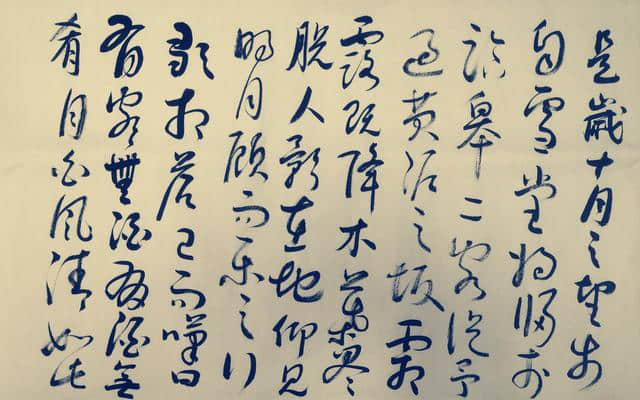 是歲十月之望步
自雪堂將歸於
臨皋二客從予
過黃泥之坂霜
露既降木葉盡
脫人影在地仰見
明月顧而樂之行
歌相答已而嘆曰
有客無酒有酒無
肴月白風清如此